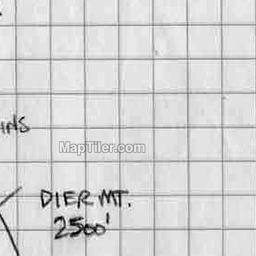 INS
MapTiler.com
DIER MT.
2500'